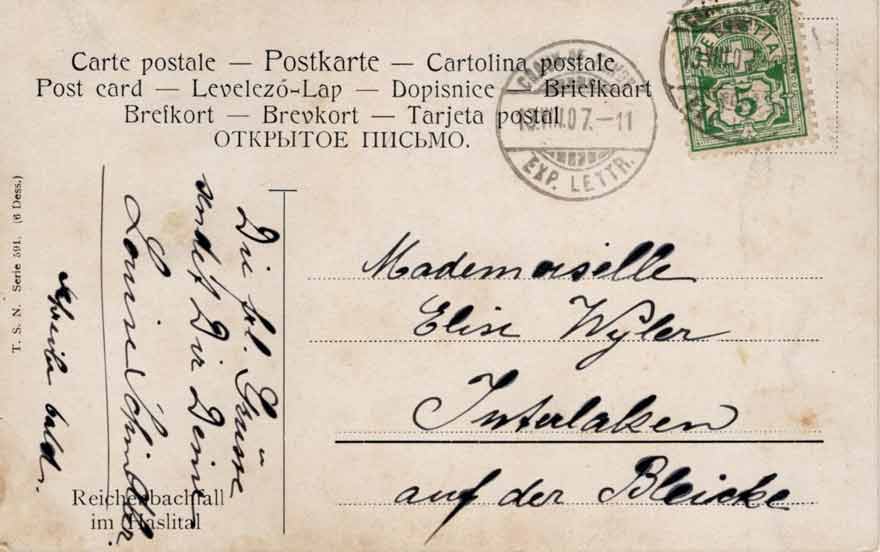 Carte postale — Postkarte — Cartolina postale
Post card — Levelező-Lap — Dopisnice — Briefkaart
Brefkort — Brevkort — Tarjeta postal
ОТКРЫТОЕ ПИСЬМО.
EXP. LETTR.
HELVETIA
5
T. S. N. Serie 591. (6 Dess.)
Die frl. Grüsse
sendet Dir Deine
Louise
schreibe bald.
Mademoiselle
Elise Wyler
Interlaken
auf der Bleicke
Reichenbachfall
im Haslital